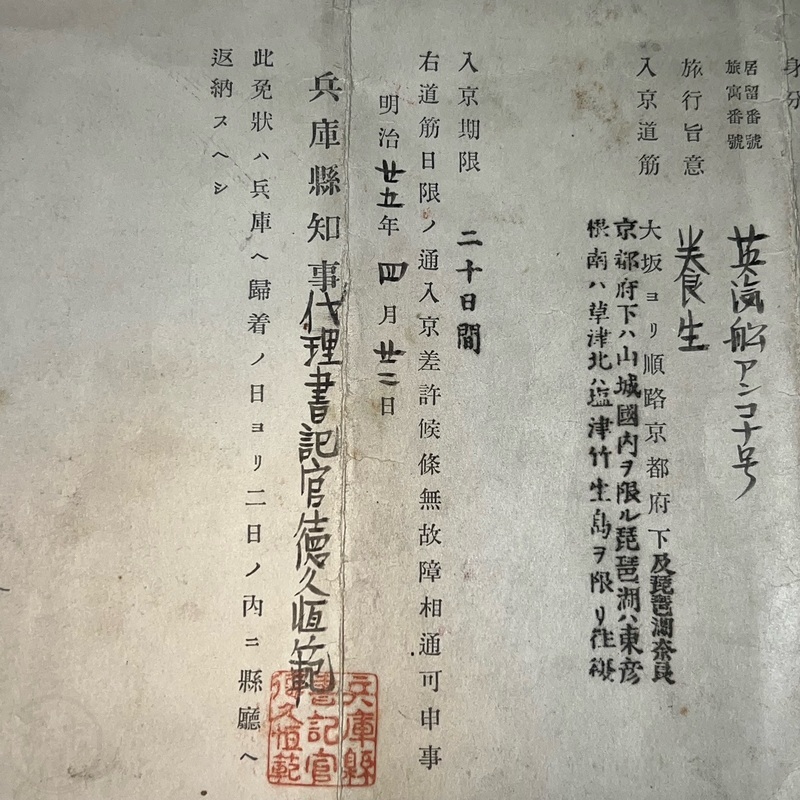 身分
居留番號
旅寓番號
英滊舩アンコナ号
旅行旨意
養生
入京道筋
大坂ヨリ順路京都府下及琵琶湖奈良
京都府下ハ山城國内ヲ限ル琵琶湖ハ東彦
根南ハ草津北ハ塩津竹生島ヲ限リ往復
入京期限
二十日間
右道筋日限ノ通入京差許候條無故障相通可申事
明治廿五年四月廿二日
兵庫縣知事代理書記官德久恒範
此免狀ハ兵庫ヘ歸着ノ日ヨリ二日ノ内ニ縣廳ヘ
返納スヘシ
兵庫縣
書記官
德久恒範